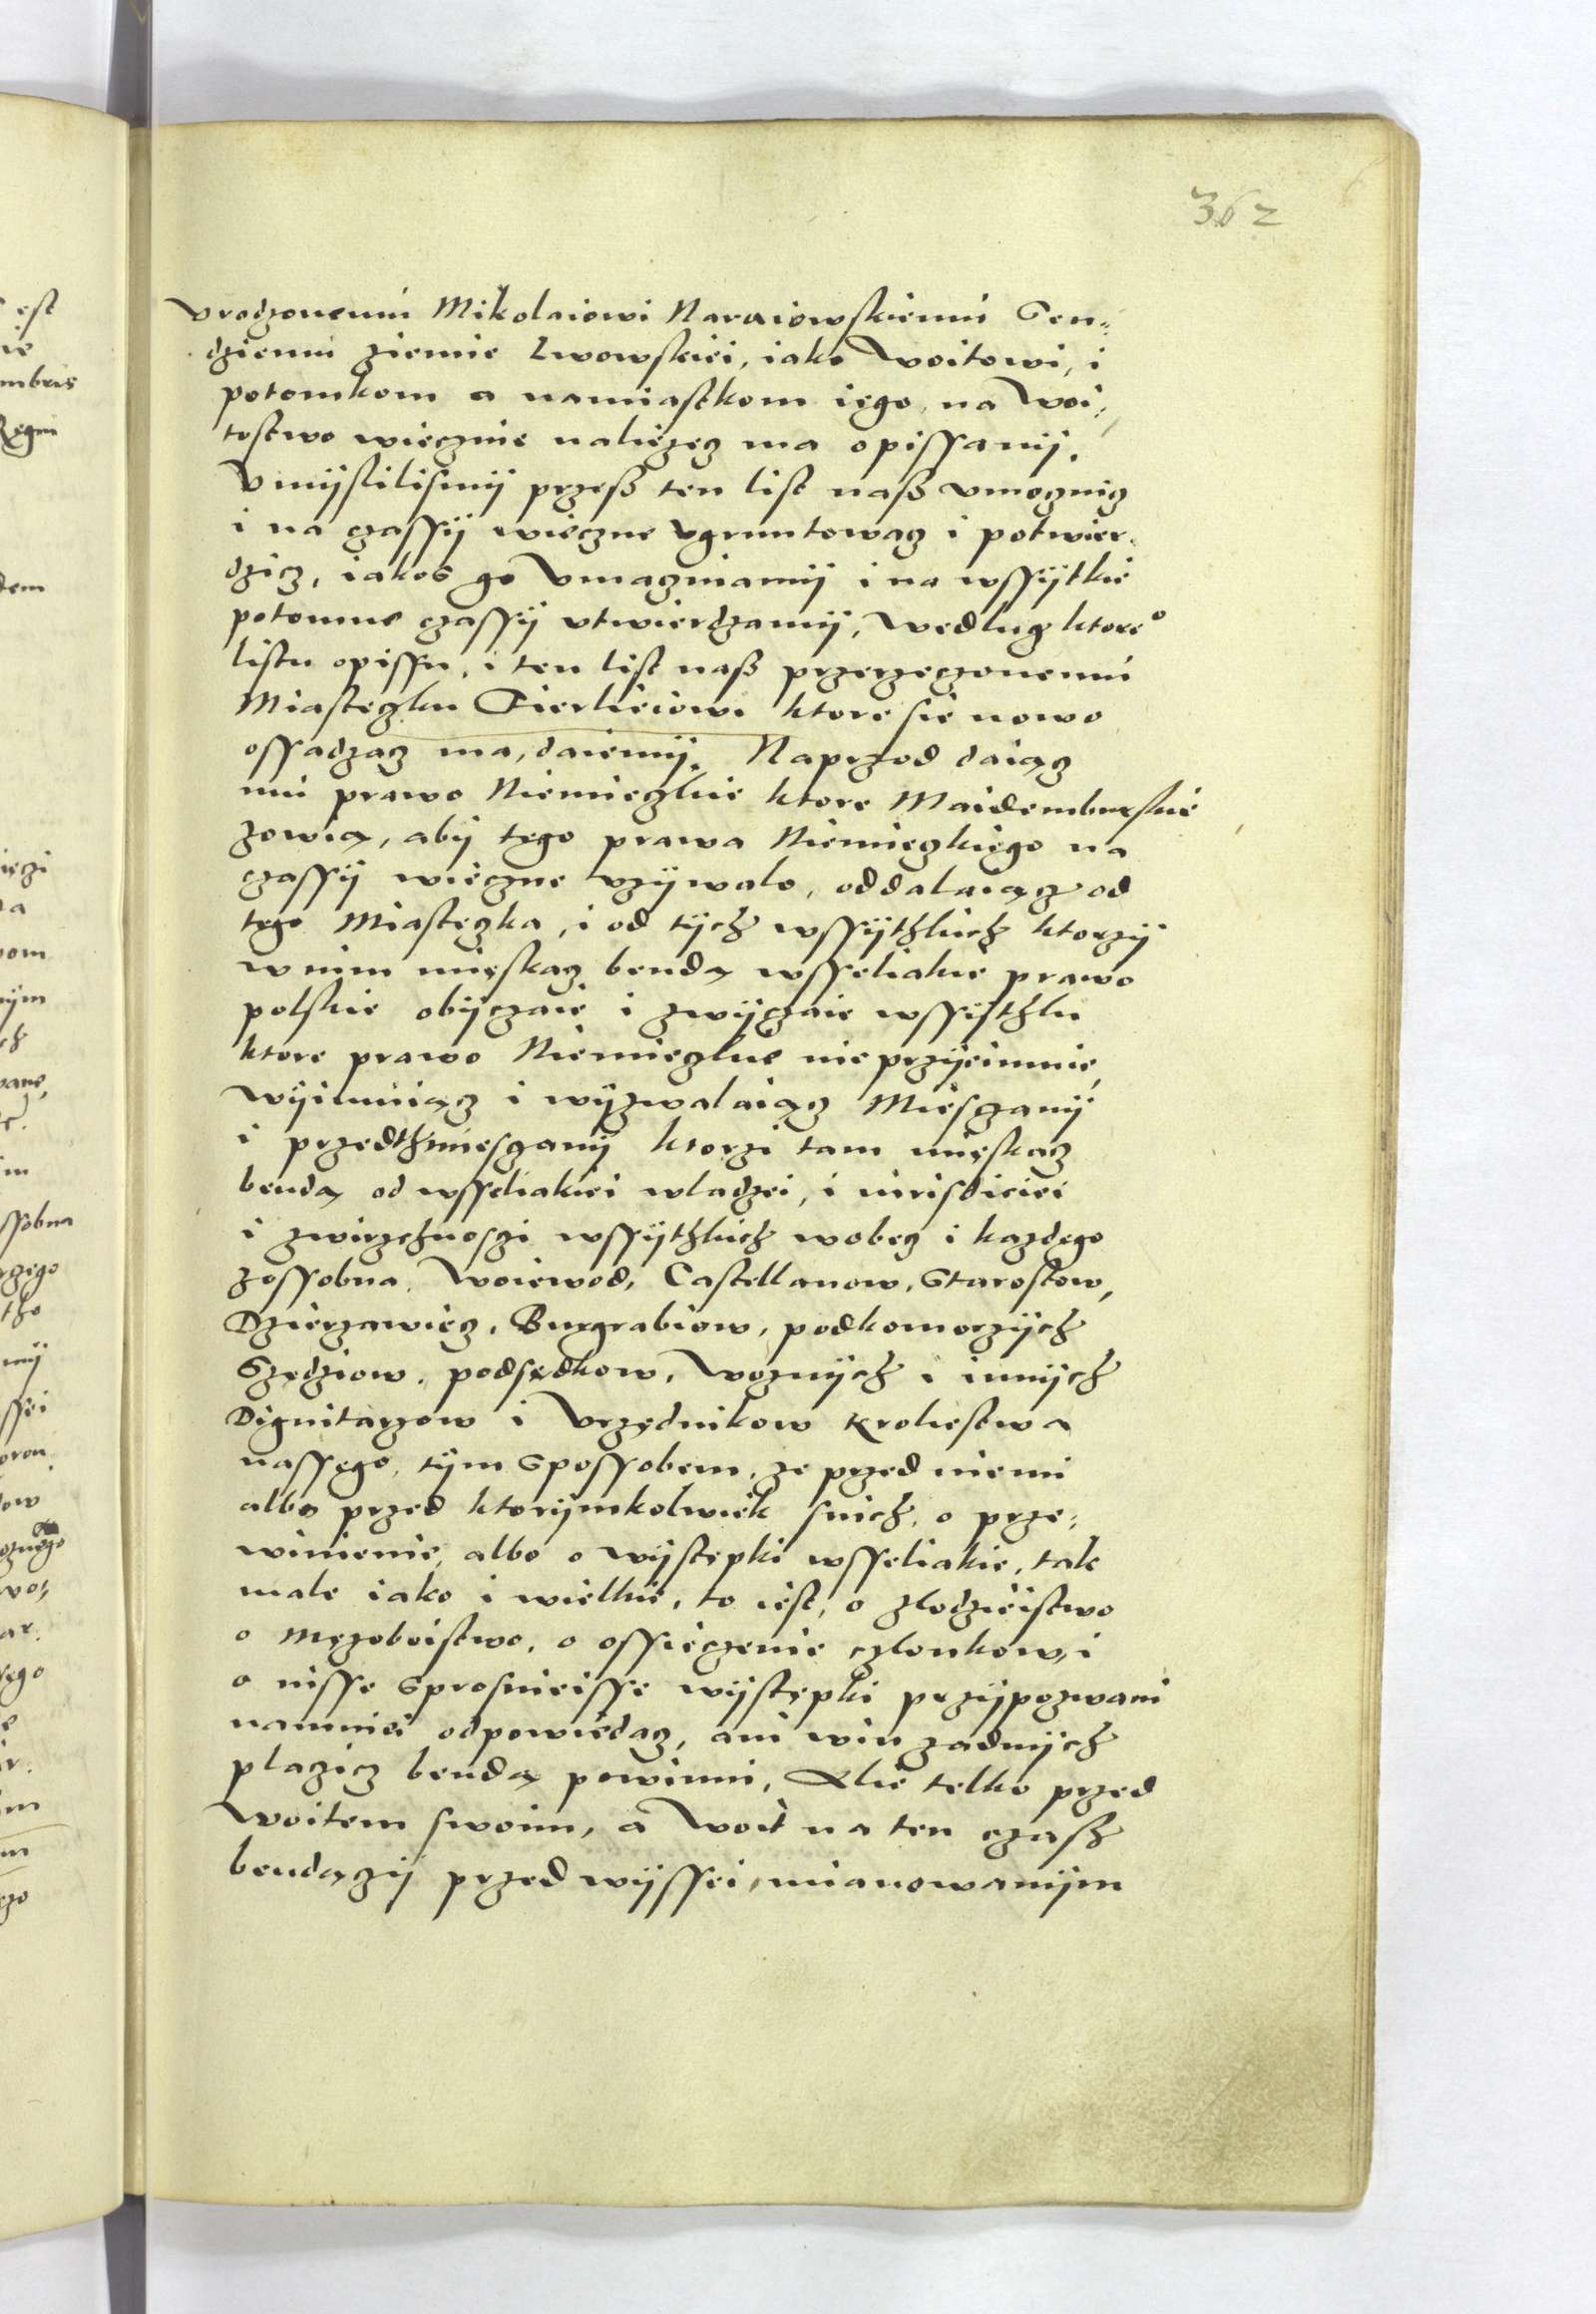 362
vrodzonemu Mikolaiowi Naraiowskiemu Sen⸗
dziemu ziemie Lwowskiei, iako Woitowi, i
potomkom a namiastkom iego, na Woi⸗
tostwo wiecznie naliezecz ma opissanij.
Vmijslilismij przesz ten list nasz vmocznicz
i na czassij wieczne vgruntowacz i potwier⸗
dzicz, iakos go Vmaczniamij i na wssijtkie
potomne czassij vtwierdzamij, wedlug ktore°
listu opissu, i ten list nasz przerzeczonemu
Miasteczku Fierlieiowi ktore sie nowo
ossadzacz ma, daiemij. Naprzod daiącz
mu prawo Niemieczkie ktore Maidemburskie
zowią, abij tego prawa Niemieczkiego na
czassij wieczne vzijwalo, oddalaiącz od
tego Miasteczka, i od tijch wssijthkich ktorzij
w nim mięskacz bendą wsseliakie prawo
polskie obijczaie i zwijczaie wssijsthki
ktore prawo Niemieczkie nie przijeimnie,
wijimuiącz i wijzwalaiącz Miesczanij
i przedthmiesczanij ktorzi tam mięskacz
bendą od wsseliakiei wladzei, i iurisdiciei
i zwirzchnosczi wssijthkich wobecz i kazdego
zossobna, Woiewod, Castellanow, Starostow,
Dzierzawiecz, Burgrabiow, podkomorzijch
Szędziow, podsędkow, Woznijch i innijch
Dignitarzow i Vrzędnikow Kroliestwa
nassego, tijm Spossobem, ze przed niemi
albo przed ktorijmkolwiek snich, o prze⸗
winienie, albo o wijstępki wsseliakie, tak
male iako i wielkie, to iest, o zlodzieistwo
o męzoboistwo, o ossieczenie czlonkow, i
o nisse Sprosnieisse wijstępki przijpozwani
namniei odpowiedacz, ani win zadnijch
placzicz bendą powinni, Alie telko przed
Woitem swoim, a Woit na ten czasz
bendączij przed wijssei mianowanijm